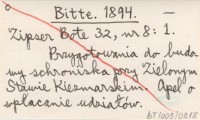 Bitte. 1894. —
Zipser Bote 32, nr 8: 1.
Przygotowania do budo
wy schroniska przy Zielonym
Stawie Kiezmarskim. Apel o
wpłacanie udziałów.
bT/005/0818